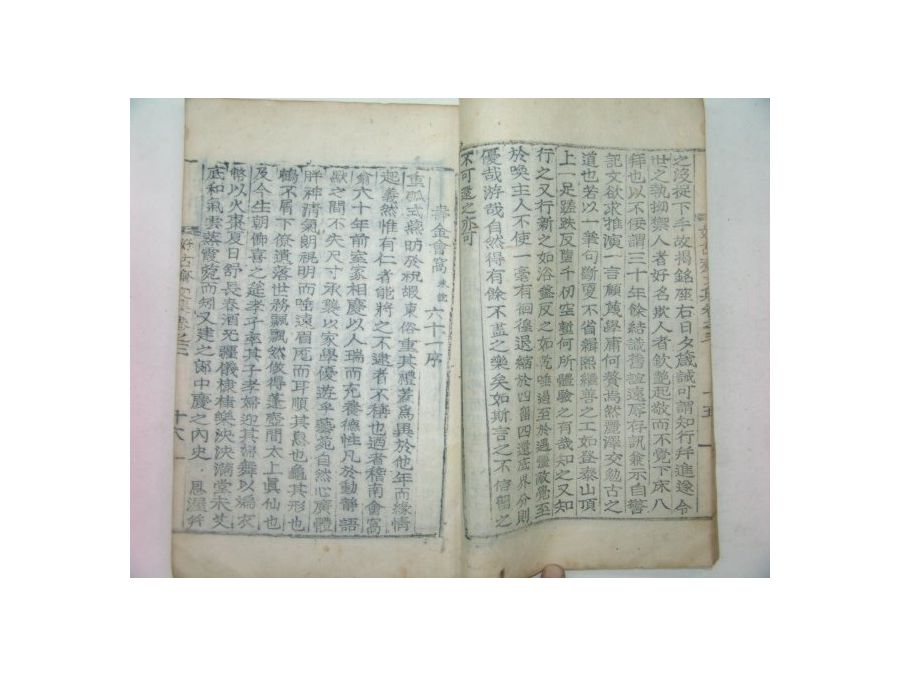 之沒從下手故揭銘座右日夕箴誡可謂知行幷進遂令
世之執拗禦人者好名欺人者欽艶起敬而不覺下床八
拜也以不佞謂三十年餘結識舊誼遠辱存訊兼示自警
記文欲求雅演一言顧蔑學庸何贅焉然麗澤交勉古之
道也若以一筆句斷更不省緝熙繼善之工如登泰山頂
上一足蹉跌反墮千仞空壑何所體驗之有哉知之又知
行之又行新之如浴盤反之如乾唾過至於過體敬覺至
於喚主人不使一毫有徊徨退縮於四留四還底界分則
優哉游哉自然得有餘不盡之樂矣如斯言之不信罷之
不可盡之亦可
壽金會窩 六十一序
重弧式燕昉於祝嘏東俗重其禮若爲異於他年而緣情
起義然惟有仁者能將之不逮者不稱也迺者稽南會窩
翁六十年前室家相慶以人瑞而充養德性凡於動靜語
默之間不失尺寸承襲以家學優遊乎藝苑自然心廣體
胖神清氣朗視明而唾遠眉厖而耳順其息也龜其形也
鶴不屑下僚遺落世務飄飄然倣得蓬壺間太上眞仙也
及今生朝佛喜之筵孝子率其子孝婦迎其婦舞以爲衣
幣以火棗夏日舒長春酒无疆儀棣棣樂泱泱滿堂未艾
底和氣雲蒸霞蔚而知又建之鄒中慶之內史 恩渥幷
好古齋文集卷之三 十六